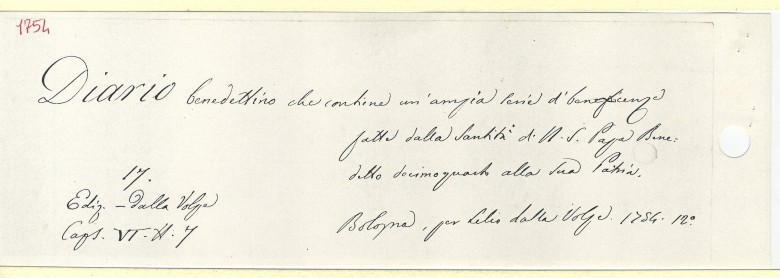 1754
Diario benedettino che contiene un'ampia serie d'beneficenze
fatte dalla Santità di N. S. Papa Bene:
detto decimoquarto alla sua Patria.
17.
Ediz. - dalla Volpe
Caps. VI. H. 7
Bologna, per Lelio dalla Volpe. 1754. 12º